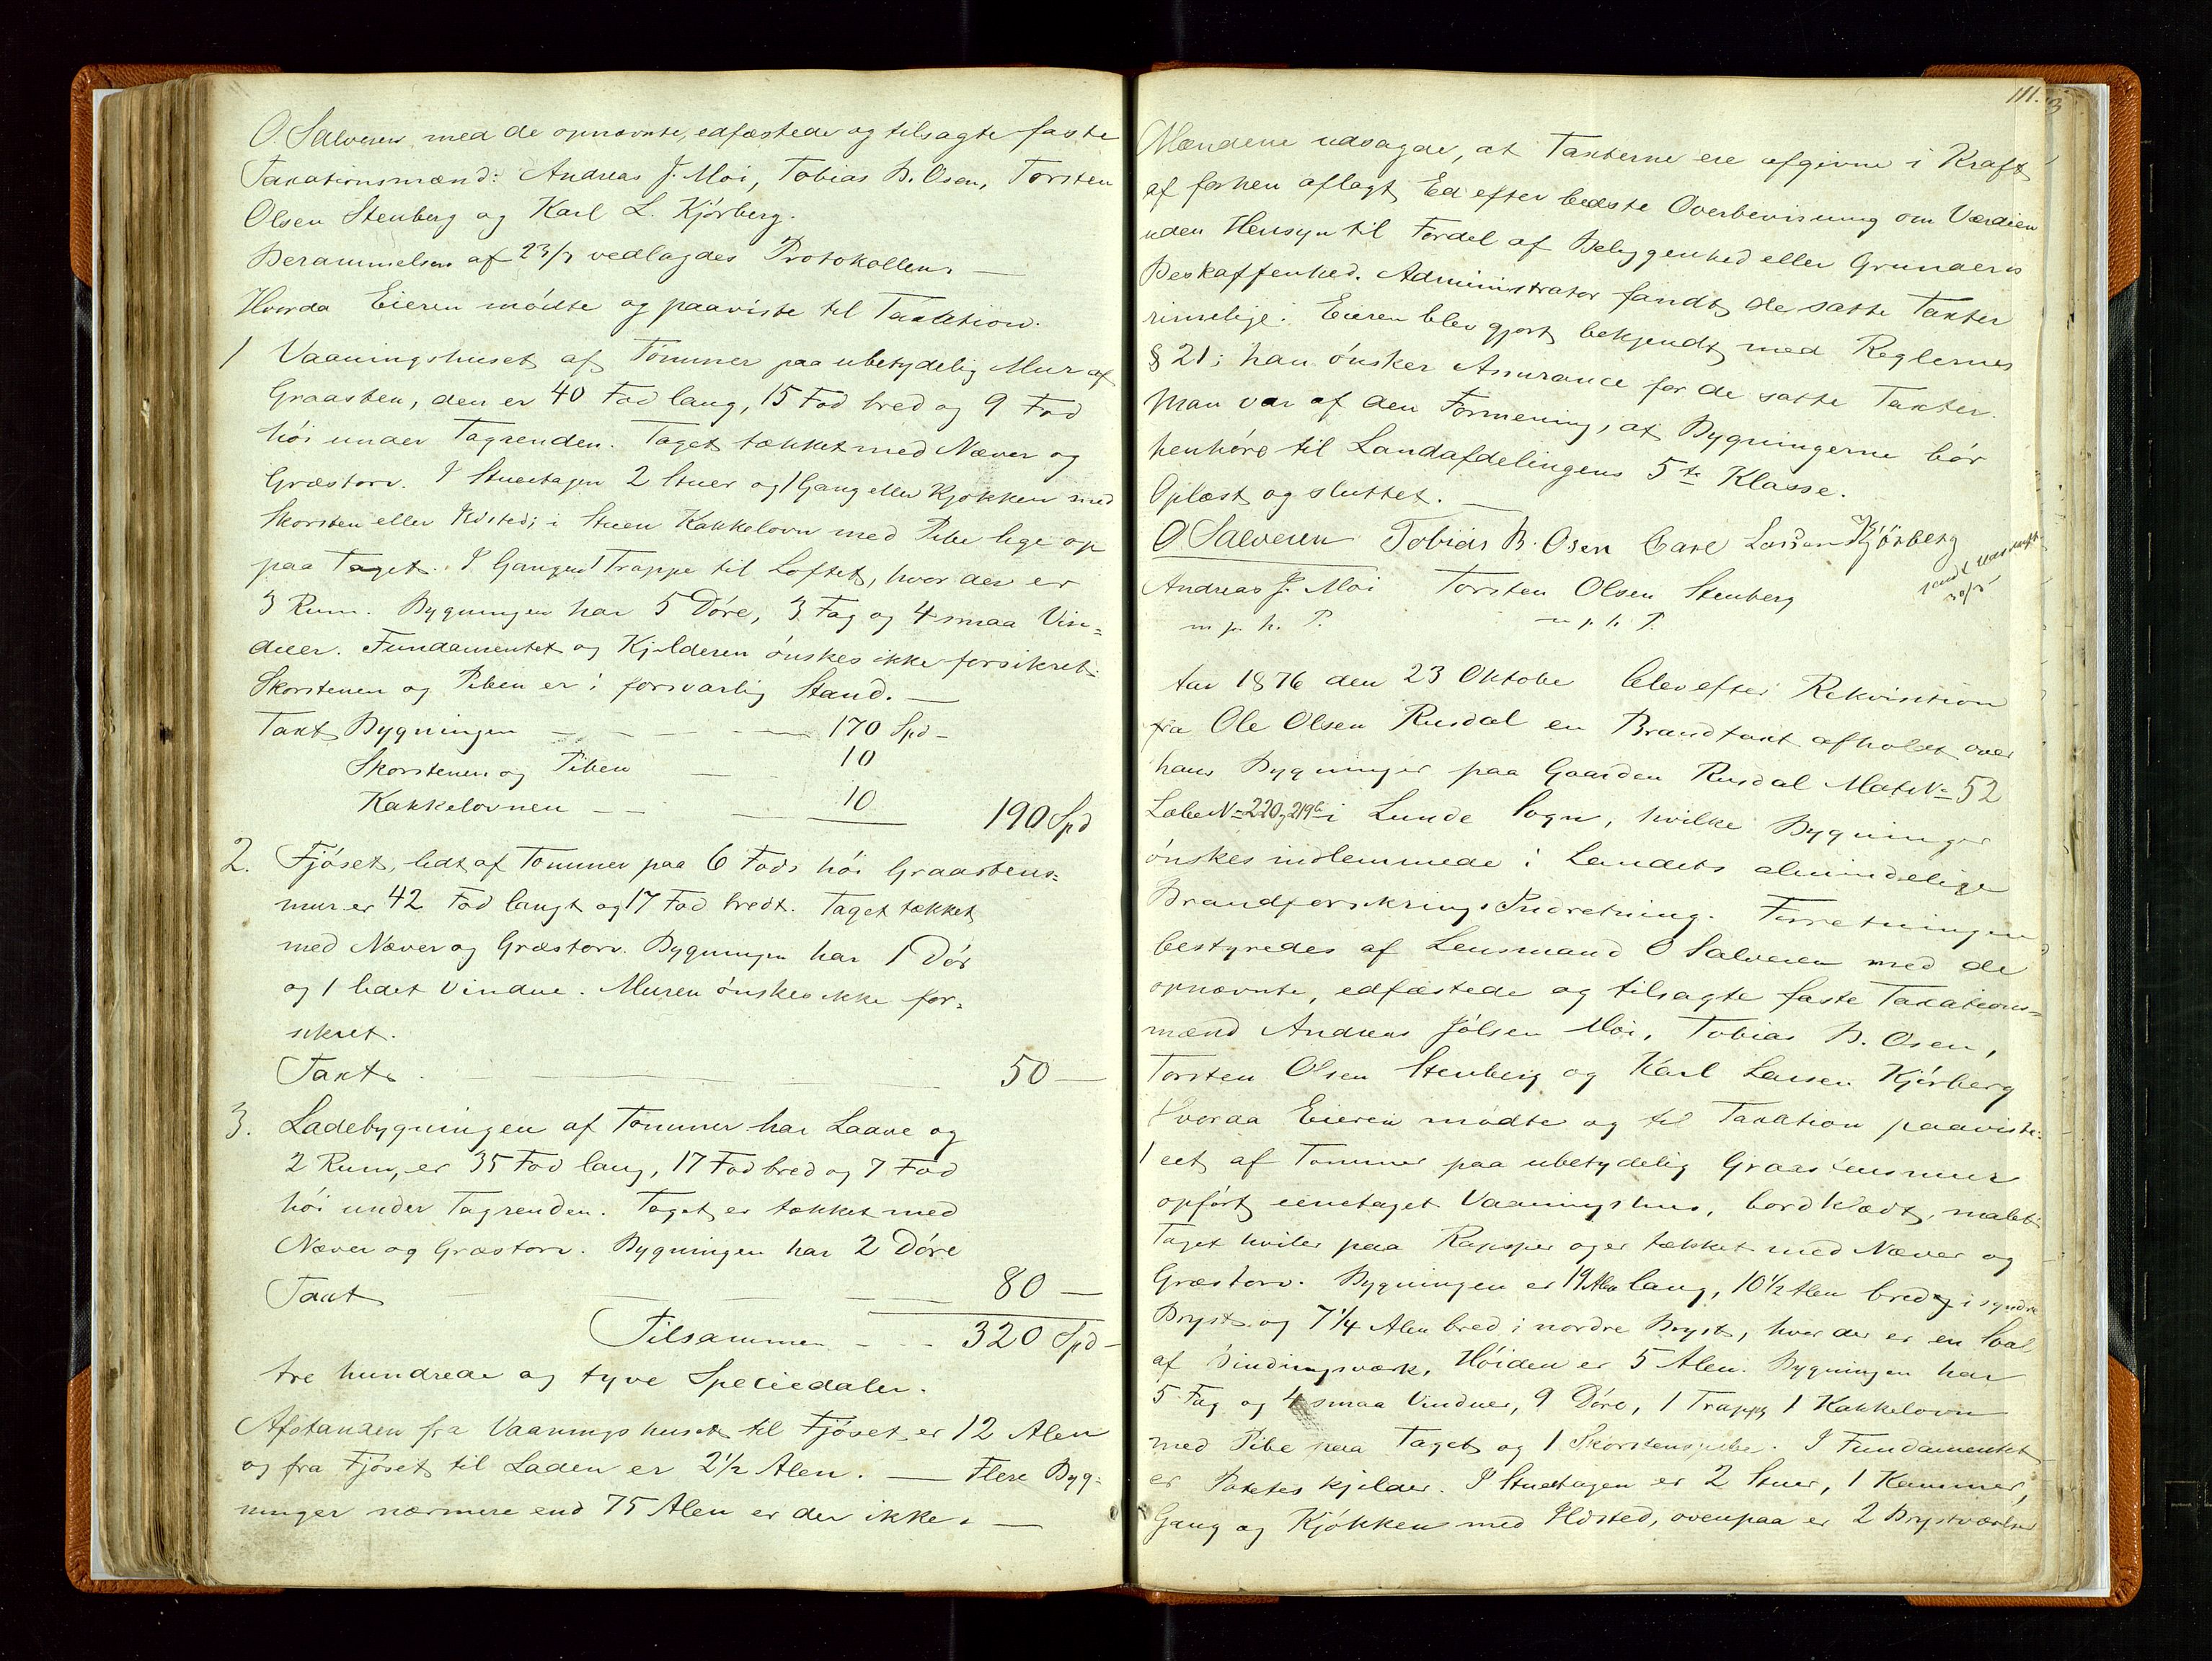 O. Salvesen med de opnævnte, edfæstede og tilsagte faste
Taxationsmænd: Andreas J. Moi, Tobias B. Osen, Torsten
Olsen Stenberg og Karl L. Kjørberg.
Berammelsen af 23/7 vedlagdes Protokollen. —
Hvorda Eieren mødte og paaviste til Taxation.
1 Vaaningshuset af Tømmer paa ubetydelig Mur af
Graasten, den er 40 Fod lang, 15 Fod bred og 9 Fod
høi under Tagrenden. Taget tækket med Næver og
Græstorv. I Stueetagen 2 Stuer og 1 Gang eller Kjøkken med
Skorsten eller Ildsted; i Stuen Kakkelovn med Pibe lige op
paa Taget. I Gangen 1 Trappe til Loftet, hvor der er
3 Rum. Bygningen har 5 Døre, 3 Fag og 4 smaa Vin=
duer. Fundamentet og Kjelderen ønskes ikke forsikret.
Skorstenen og Piben er i forsvarlig Stand. —
Taxt Bygningen — — — — 170 Spd —
Skorstenen og Piben — 10
Kakkelovnen — — 10 190 Spd
2. Fjøset, lidt af Tømmer paa 6 Fods høi Graastens=
mur er 42 Fod langt og 17 Fod bredt. Taget tækket
med Næver og Græstorv. Bygningen har 1 Dør
og 1 lidet Vindue. Muren ønskes ikke for=
sikret.
Taxt — 50 —
3. Ladebygningen af Tømmer har Laave og
2 Rum, er 35 Fod lang, 17 Fod bred og 7 Fod
høi under Tagrenden. Taget er tækket med
Næver og Græstorv. Bygningen har 2 Døre
Taxt — — — 80 —
Tilsammen — — 320 Spd —
tre hundrede og tyve Speciedaler.
Afstanden fra Vaaningshuset til Fjøset er 12 Alen
og fra Fjøset til Laden er 2½ Alen. — Flere Byg=
ninger nærmere end 75 Alen er der ikke. —
111.
Mændene udsagde, at Taxterne ere afgivne i Kraft
af forhen aflagt Ed efter bedste Overbevisning om Værdien
uden Hensyn til Fordel af Beliggenhed eller Grundens
Beskaffenhed. Administrator fandt de satte Taxter
rimelige. Eieren blev gjort bekjendt med Reglernes
§ 21; han ønsker Assurance for de satte Taxter.
Man var af den Formening, at Bygningerne bør
henhøre til Landafdelingens 5te Klasse.
Oplæst og sluttet. —
O Salvesen Tobias B. Osen Carl Larsen Kjörberg
Andreas J. Moi Torsten Olsen Stenberg
m p. h. P. m p. h P.
Aar 1876 den 23 Oktober blev efter Rekvisition
fra Ole Olsen Rusdal en Brandtaxt afholdt over
hans Bygninger paa Gaarden Rusdal Mat№ 52
Løbe№ 220, 219b i Lunde Sogn, hvilke Bygninger
ønskes indlemmede i Landets almindelige
Brandforsikrings Indretning. Forretningen
bestyredes af Lensmand O Salvesen med de
opnævnte, edfæstede og tilsagte faste Taxations=
mænd Andreas Jølsen Moi, Tobias B. Osen,
Torsten Olsen Stenberg og Karl Larsen Kjørberg
Hvoraa Eieren mødte og til Taxation paaviste:
1 eet af Tømmer paa ubetydelig Graastensmur
opført eenetaget Vaaningshus, bordklædt, malet.
Taget hviler paa Rapper og er tækket med Næver og
Græstorv. Bygningen er 19 Alen lang, 10½ Alen bred i syndre
Bryst og 7¼ Alen bred i nordre Bryst, hvor der er en Sval
af Bindingsværk. Høiden er 5 Alen. Bygningen har
5 Fag og 4 smaa Vinduer, 9 Døre, 1 Trappe, 1 Kakkelovn
med Pibe paa Taget og 1 Skorstenspibe. I Fundamentet
er Potetes kjelder. I Stueetagen er 2 Stuer, 1 Kammer,
Gang og Kjøkken med Ildsted, ovenpaa er 2 Brystværelser